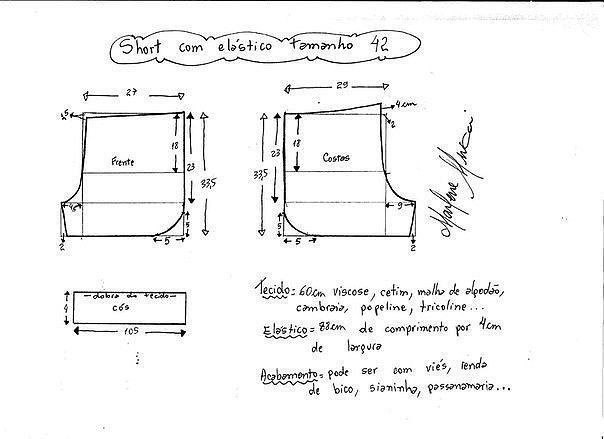 Short com elástico tamanho 42
27
29
4cm
2
Frente
18
23
33,5
Costas
18
23
33,5
5
5
2
9
5
5
2
dobra do tecido
cós
105
Tecido = 60cm viscose, cetim, malha de algodão,
cambraia, popeline, tricoline...
Elástico = 88cm de comprimento por 4cm
de largura
Acabamento = pode ser com viés, renda
de bico, sianinha, passanamaria...